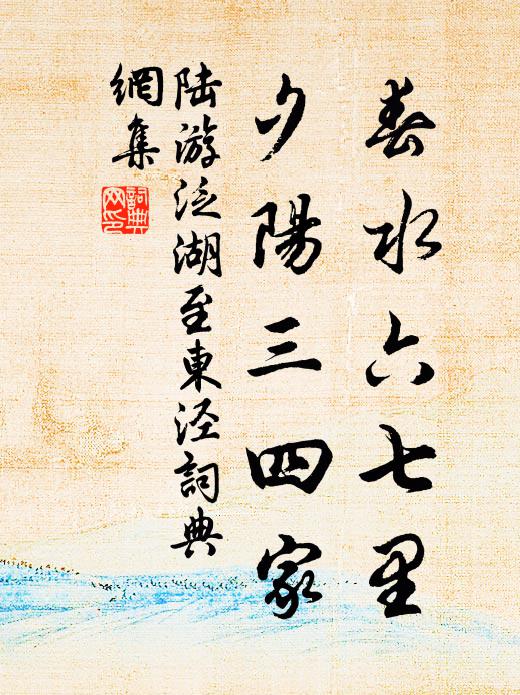 春水六七里
夕陽三四家
陆游泛湖至東泾詞典
網集
詞典
网印